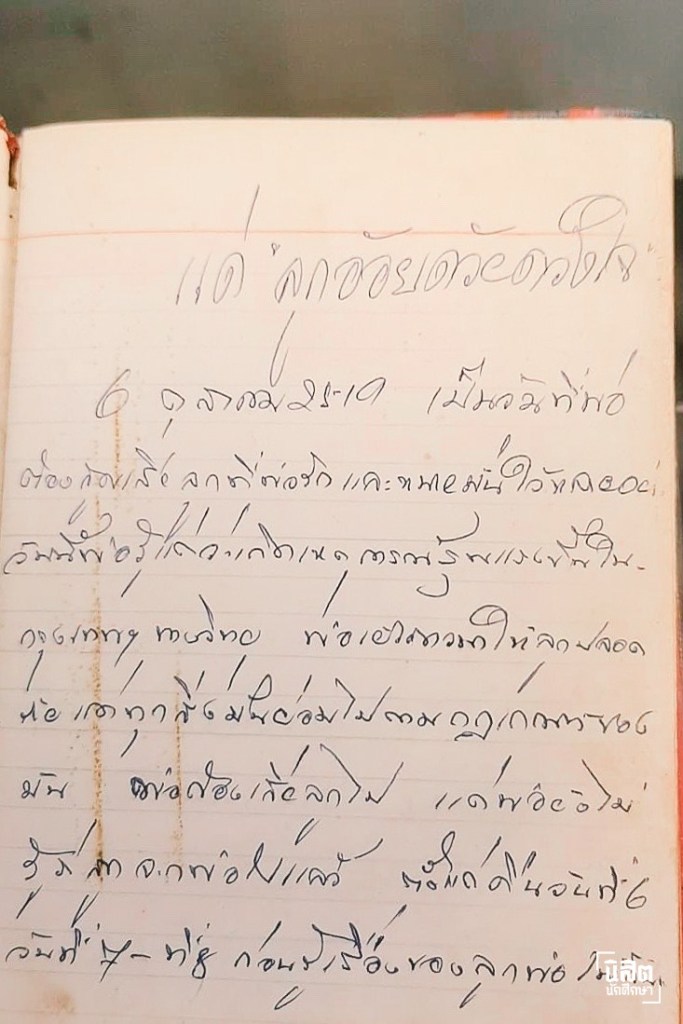 แด่ "ลูกอ้อยด้วยดวงใจ"
6 ตุลาคม 2519 เป็นวันที่พ่อ
ต้องสูญเสียลูกที่พ่อรักและหมายมั่นไว้หลาย
วันนี้พ่อรู้แต่ว่าเกิดเหตุการณ์รุนแรงขึ้นใน
กรุงเทพฯ ทางวิทยุ พ่อภาวนาให้ลูกปลอด
ภัย แต่ทุกสิ่งมันย่อมไปตามกฎเกณฑ์ของ
มัน พ่อต้องเสียลูกไป แต่พ่อยังไม่
รู้ว่าลูกจากพ่อไปแล้ว ตั้งแต่คืนวันที่ 6
วันที่ 7 - ที่ 8 ก่อนรู้เรื่องของลูกพ่อ
นิสิต
นักศึกษา